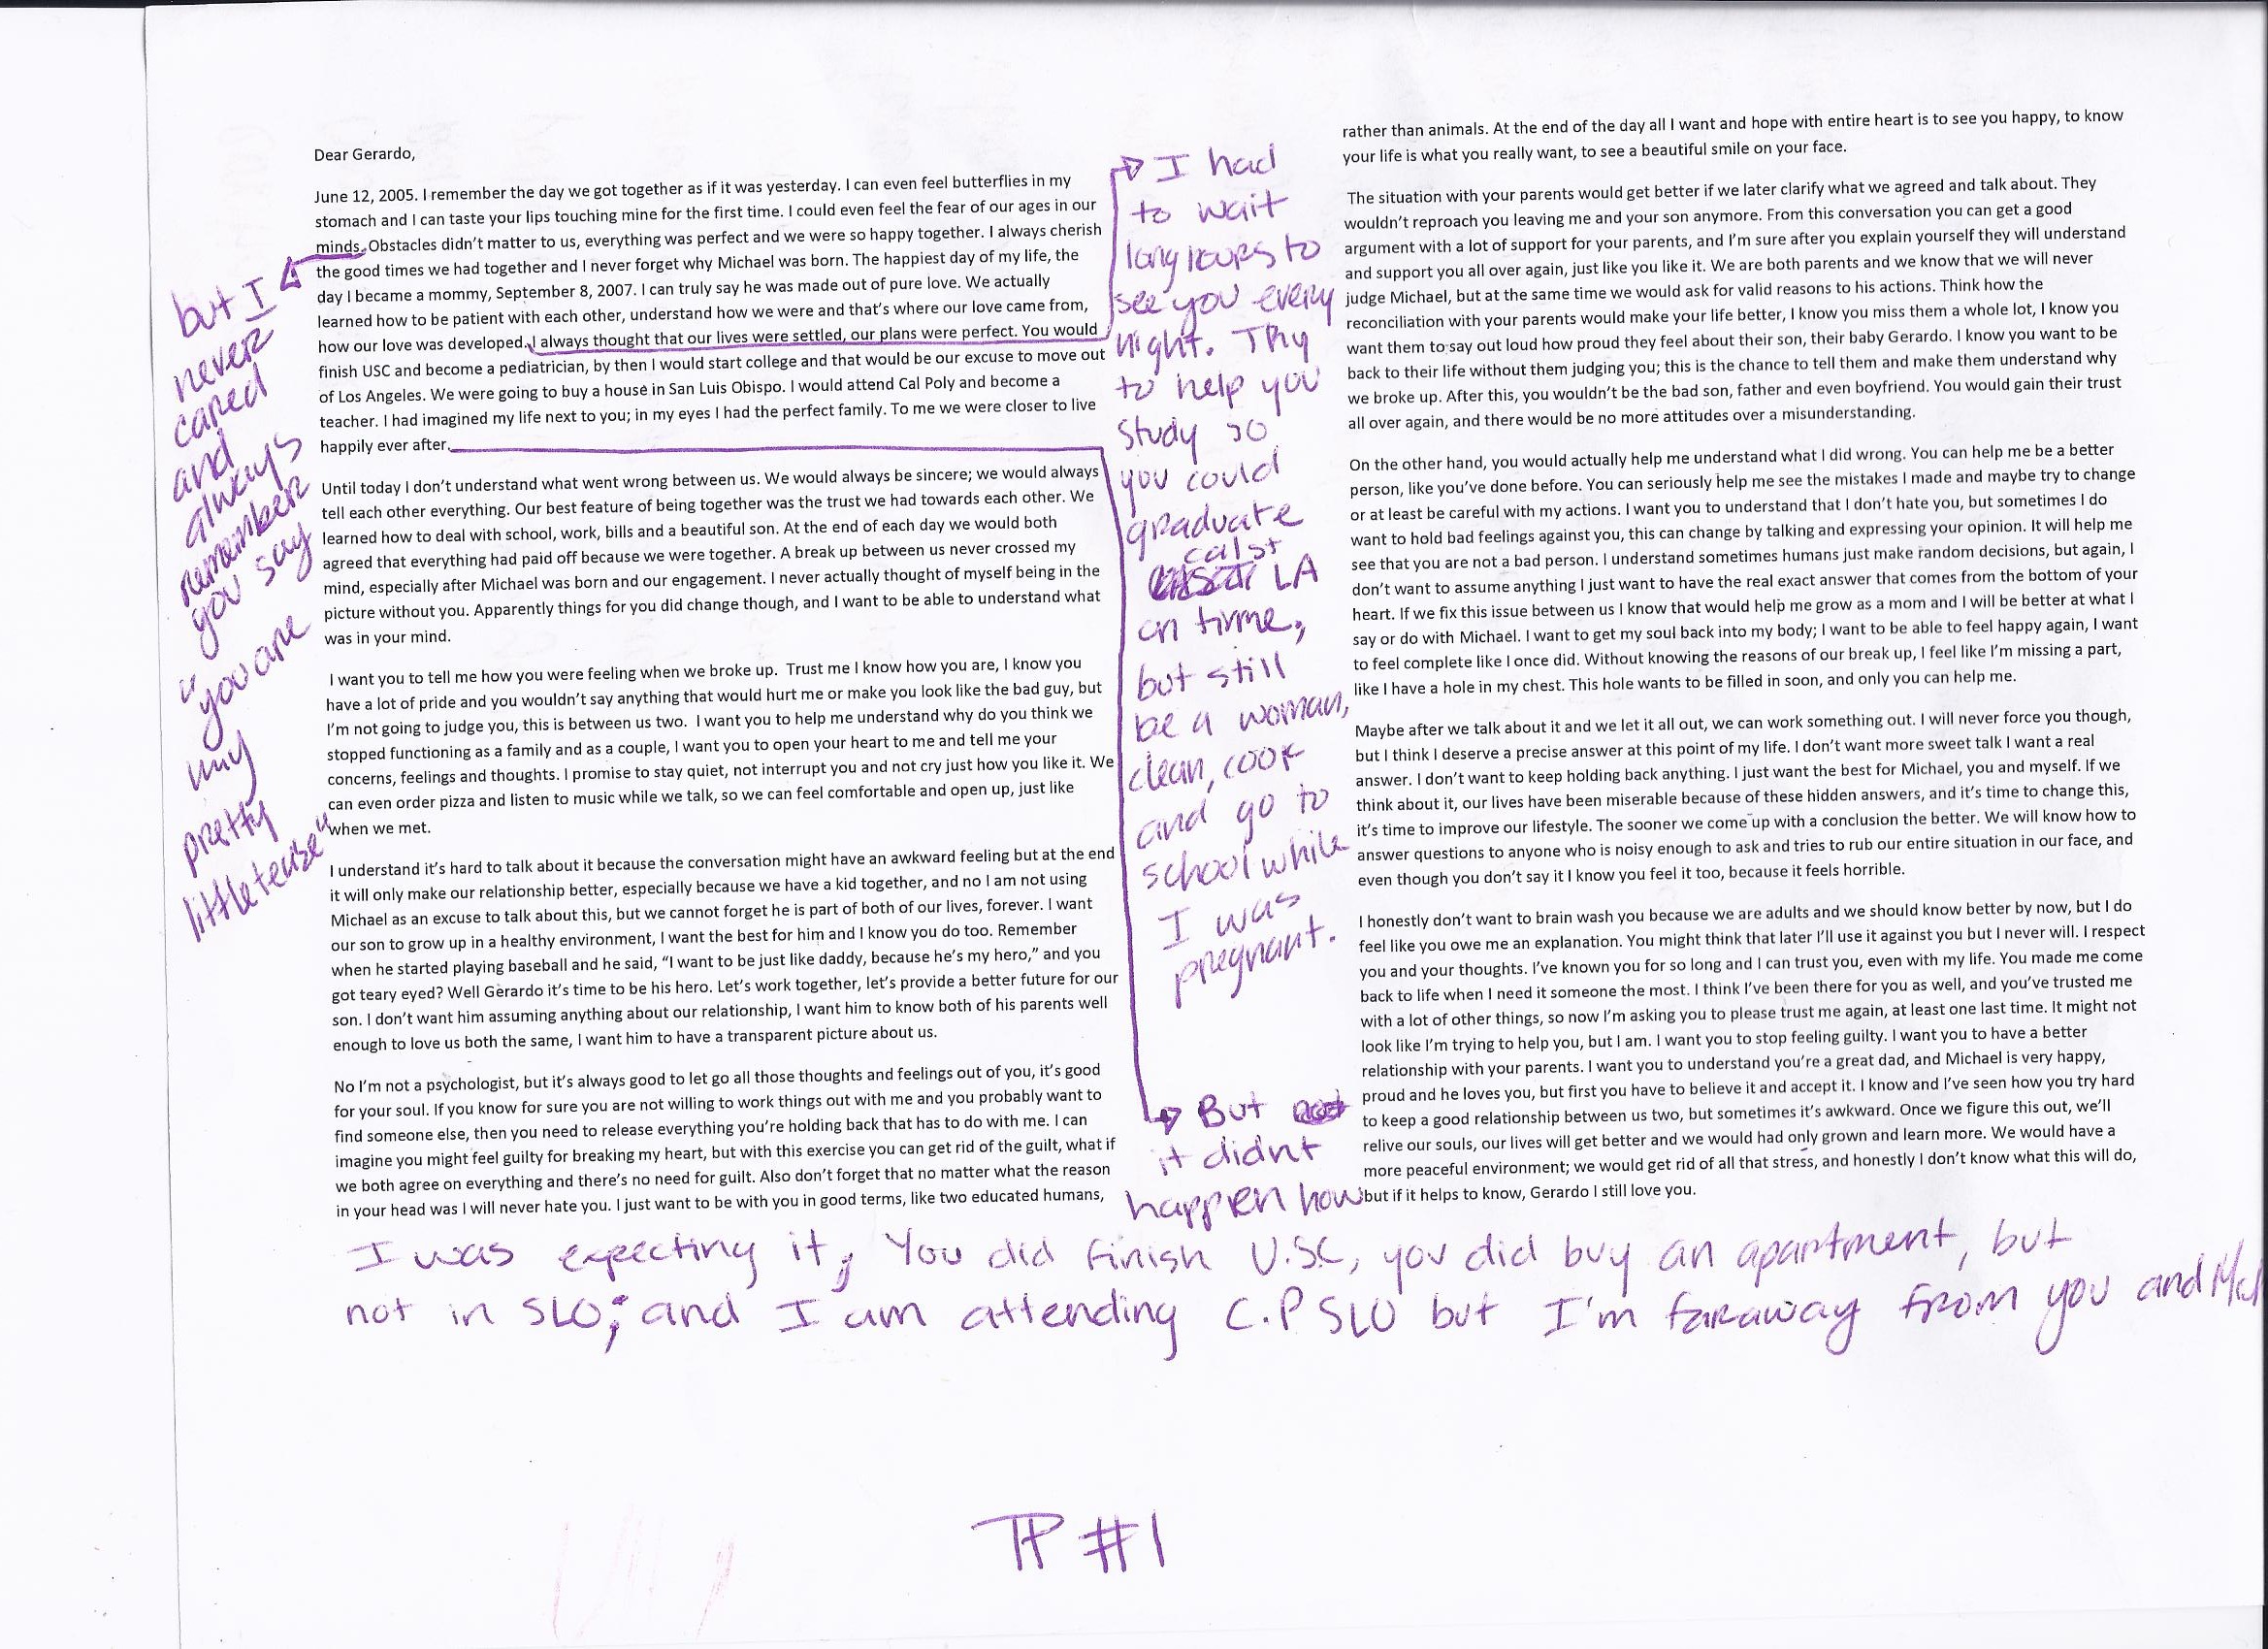 Dear Gerardo,
June 12, 2005. I remember the day we got together as if it was yesterday. I can even feel butterflies in my
stomach and I can taste your lips touching mine for the first time. I could even feel the fear of our ages in our
minds. Obstacles didn't matter to us, everything was perfect and we were so happy together. I always cherish
the good times we had together and I never forget why Michael was born. The happiest day of my life, the
day I became a mommy, September 8, 2007. I can truly say he was made out of pure love. We actually
learned how to be patient with each other, understand how we were and that's where our love came from,
how our love was developed. I always thought that our lives were settled, our plans were perfect. You would
finish USC and become a pediatrician, by then I would start college and that would be our excuse to move out
of Los Angeles. We were going to buy a house in San Luis Obispo. I would attend Cal Poly and become a
teacher. I had imagined my life next to you; in my eyes I had the perfect family. To me we were closer to live
happily ever after.
Until today I don't understand what went wrong between us. We would always be sincere; we would always
tell each other everything. Our best feature of being together was the trust we had towards each other. We
learned how to deal with school, work, bills and a beautiful son. At the end of each day we would both
agreed that everything had paid off because we were together. A break up between us never crossed my
mind, especially after Michael was born and our engagement. I never actually thought of myself being in the
picture without you. Apparently things for you did change though, and I want to be able to understand what
was in your mind.
I want you to tell me how you were feeling when we broke up. Trust me I know how you are, I know you
have a lot of pride and you wouldn't say anything that would hurt me or make you look like the bad guy, but
I'm not going to judge you, this is between us two. I want you to help me understand why do you think we
stopped functioning as a family and as a couple, I want you to open your heart to me and tell me your
concerns, feelings and thoughts. I promise to stay quiet, not interrupt you and not cry just how you like it. We
can even order pizza and listen to music while we talk, so we can feel comfortable and open up, just like
when we met.
I understand it's hard to talk about it because the conversation might have an awkward feeling but at the end
it will only make our relationship better, especially because we have a kid together, and no I am not using
Michael as an excuse to talk about this, but we cannot forget he is part of both of our lives, forever. I want
our son to grow up in a healthy environment, I want the best for him and I know you do too. Remember
when he started playing baseball and he said, "I want to be just like daddy, because he's my hero," and you
got teary eyed? Well Gerardo it's time to be his hero. Let's work together, let's provide a better future for our
son. I don't want him assuming anything about our relationship, I want him to know both of his parents well
enough to love us both the same, I want him to have a transparent picture about us.
No I'm not a psychologist, but it's always good to let go all those thoughts and feelings out of you, it's good
for your soul. If you know for sure you are not willing to work things out with me and you probably want to
find someone else, then you need to release everything you're holding back that has to do with me. I can
imagine you might feel guilty for breaking my heart, but with this exercise you can get rid of the guilt, what if
we both agree on everything and there's no need for guilt. Also don't forget that no matter what the reason
in your head was I will never hate you. I just want to be with you in good terms, like two educated humans,
but I
never
cared
and
always
remember
you say
"you are
my
pretty
little
I had
to wait
long hours to
see you every
night. Try
to help you
study so
you could
graduate
calst
LA
on time,
but still
be a woman,
clean, cook
and go to
school while
I was
pregnant.
But
it didnt
happen how
I was expecting it, You did finish U.S.C, you did buy an apartment, but
not in SLO; and I am attending C.P SLO but I'm faraway from you and
rather than animals. At the end of the day all I want and hope with entire heart is to see you happy, to know
your life is what you really want, to see a beautiful smile on your face.
The situation with your parents would get better if we later clarify what we agreed and talk about. They
wouldn't reproach you leaving me and your son anymore. From this conversation you can get a good
argument with a lot of support for your parents, and I'm sure after you explain yourself they will understand
and support you all over again, just like you like it. We are both parents and we know that we will never
judge Michael, but at the same time we would ask for valid reasons to his actions. Think how the
reconciliation with your parents would make your life better, I know you miss them a whole lot, I know you
want them to say out loud how proud they feel about their son, their baby Gerardo. I know you want to be
back to their life without them judging you; this is the chance to tell them and make them understand why
we broke up. After this, you wouldn't be the bad son, father and even boyfriend. You would gain their trust
all over again, and there would be no more attitudes over a misunderstanding.
On the other hand, you would actually help me understand what I did wrong. You can help me be a better
person, like you've done before. You can seriously help me see the mistakes I made and maybe try to change
or at least be careful with my actions. I want you to understand that I don't hate you, but sometimes I do
want to hold bad feelings against you, this can change by talking and expressing your opinion. It will help me
see that you are not a bad person. I understand sometimes humans just make random decisions, but again, I
don't want to assume anything I just want to have the real exact answer that comes from the bottom of your
heart. If we fix this issue between us I know that would help me grow as a mom and I will be better at what I
say or do with Michael. I want to get my soul back into my body; I want to be able to feel happy again, I want
to feel complete like I once did. Without knowing the reasons of our break up, I feel like I'm missing a part,
like I have a hole in my chest. This hole wants to be filled in soon, and only you can help me.
Maybe after we talk about it and we let it all out, we can work something out. I will never force you though,
but I think I deserve a precise answer at this point of my life. I don't want more sweet talk I want a real
answer. I don't want to keep holding back anything. I just want the best for Michael, you and myself. If we
think about it, our lives have been miserable because of these hidden answers, and it's time to change this,
it's time to improve our lifestyle. The sooner we come up with a conclusion the better. We will know how to
answer questions to anyone who is noisy enough to ask and tries to rub our entire situation in our face, and
even though you don't say it I know you feel it too, because it feels horrible.
I honestly don't want to brain wash you because we are adults and we should know better by now, but I do
feel like you owe me an explanation. You might think that later I'll use it against you but I never will. I respect
you and your thoughts. I've known you for so long and I can trust you, even with my life. You made me come
back to life when I need it someone the most. I think I've been there for you as well, and you've trusted me
with a lot of other things, so now I'm asking you to please trust me again, at least one last time. It might not
look like I'm trying to help you, but I am. I want you to stop feeling guilty. I want you to have a better
relationship with your parents. I want you to understand you're a great dad, and Michael is very happy,
proud and he loves you, but first you have to believe it and accept it. I know and I've seen how you try hard
to keep a good relationship between us two, but sometimes it's awkward. Once we figure this out, we'll
relive our souls, our lives will get better and we would had only grown and learn more. We would have a
more peaceful environment; we would get rid of all that stress, and honestly I don't know what this will do,
but if it helps to know, Gerardo I still love you.
TP #1